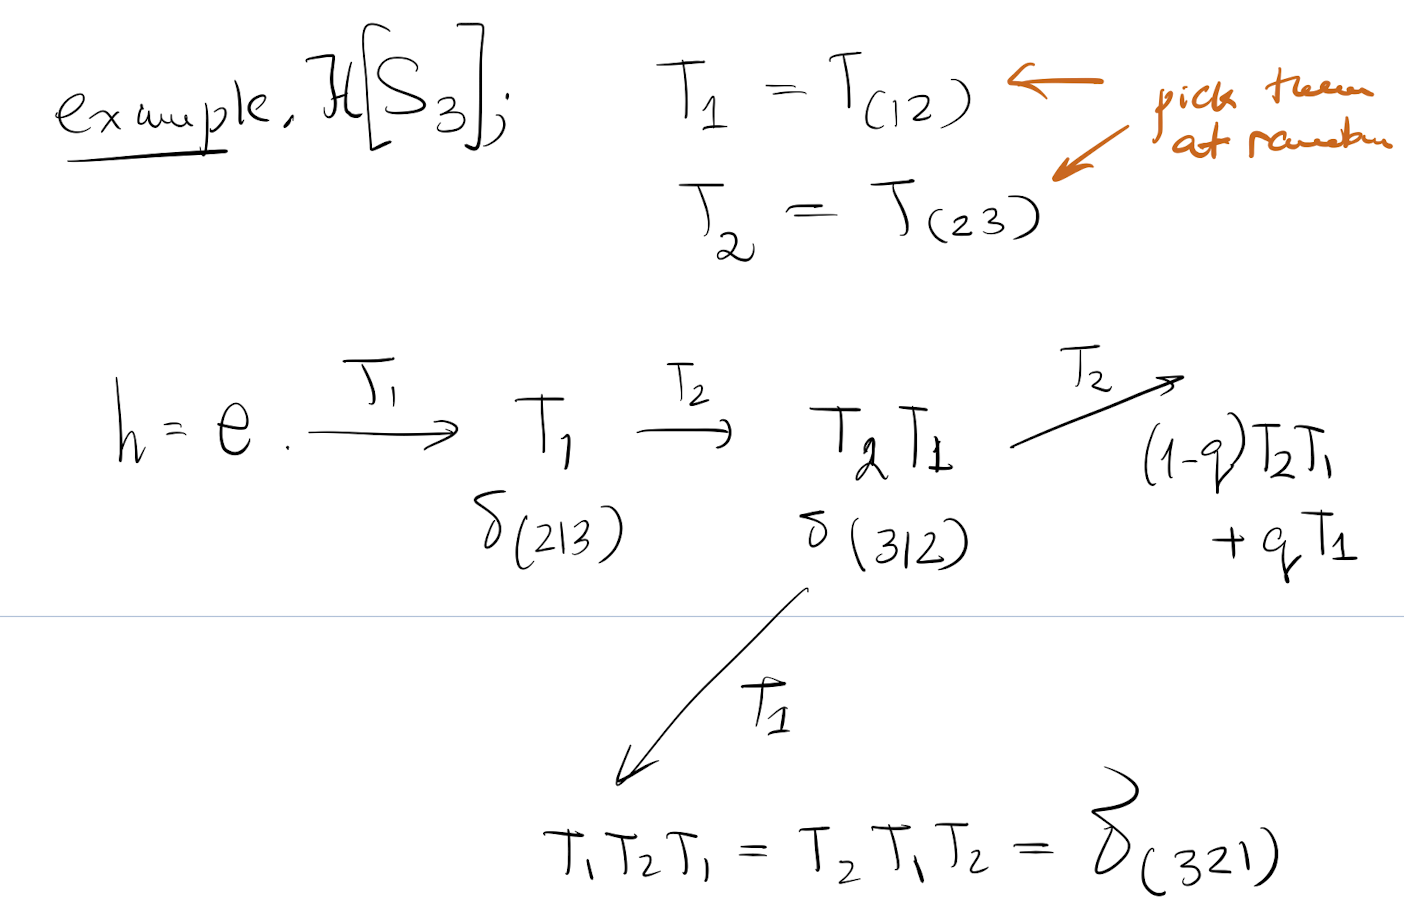 example. H[S_3]; T_1 = T_(12) ← pick them
at random
T_2 = T_(23)
h = e . →^{T_1} T_1 →^{T_2} T_2 T_1 →^{T_2} (1-q)T_2 T_1
δ_(213) δ_(312) + q T_1
T_1
T_1 T_2 T_1 = T_2 T_1 T_2 = δ_(321)